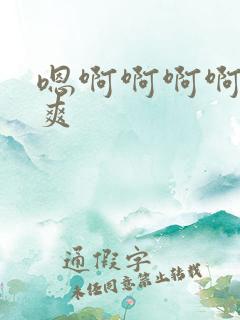 嗯啊啊啊啊
爽
通假字
未经同意禁止转载